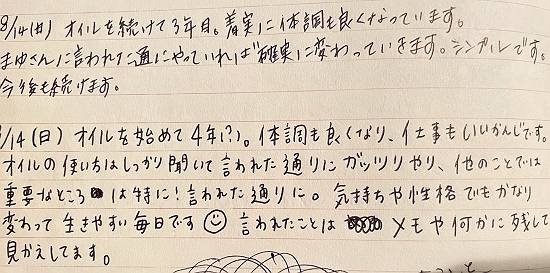 8/14(日) オイルを続けて3年目。着実に体調も良くなっています。
まゆさんに言われた通にやっていれば確実に変わっていきます。シンプルです。
今後も続けます。
/14(日) オイルを始めて4年(?)。体調も良くなり、仕事もいいかんじです。
オイルの使い方はしっかり聞いて言われた通りにガッツリやり、他のことでは
重要なところは特に!言われた通りに。気持ちや性格でもかなり
変わって生きやすい毎日です☺ 言われたことはメモや何かに残して
見かえしてます。